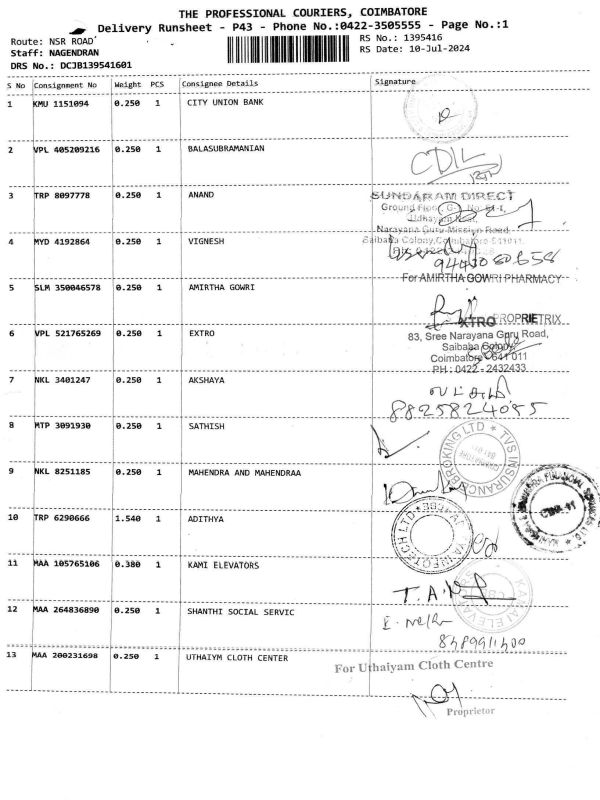 THE PROFESSIONAL COURIERS, COIMBATORE
Delivery Runsheet - P43 - Phone No.:0422-3505555 - Page No.:1
Route: NSR ROAD
Staff: NAGENDRAN
DRS No.: DCJB139541601
RS No.: 1395416
RS Date: 10-Jul-2024
S No Consignment No Weight PCS Consignee Details Signature
1 KMU 1151094 0.250 1 CITY UNION BANK
2 VPL 405209216 0.250 1 BALASUBRAMANIAN
CDIL
3 TRP 8097778 0.250 1 ANAND
SUNDARAM DIRECT
Ground Floor,
Narayana Guru Mission Road,
Saibaba Colony, Coimbatore-641011.
4 MYD 4192864 0.250 1 VIGNESH
For AMIRTHA GOWRI PHARMACY
5 SLM 350046578 0.250 1 AMIRTHA GOWRI
PROPRIETRIX
6 VPL 521765269 0.250 1 EXTRO
XTRO
83, Sree Narayana Guru Road,
Saibaba Colony,
Coimbatore - 641 011
PH : 0422 - 2432433
7 NKL 3401247 0.250 1 AKSHAYA
8825824095
8 MTP 3091930 0.250 1 SATHISH
TVS INSURANCE BROKING LTD
9 NKL 8251185 0.250 1 MAHENDRA AND MAHENDRAA
10 TRP 6290666 1.540 1 ADITHYA
11 MAA 105765106 0.380 1 KAMI ELEVATORS
12 MAA 264836890 0.250 1 SHANTHI SOCIAL SERVIC
13 MAA 200231698 0.250 1 UTHAIYM CLOTH CENTER
For Uthaiyam Cloth Centre
Proprietor